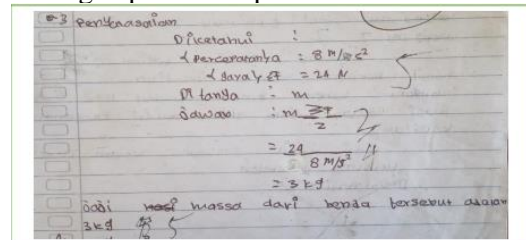 3 Penyelasaian
Diketahui :
percepatanya : 8 m/s²
gaya ΣF = 24 N
Ditanya : m
Jawab : m ΣF
2
= 24
8 m/s²
= 3 kg
Jadi massa dari benda tersebut adalah
3 kg